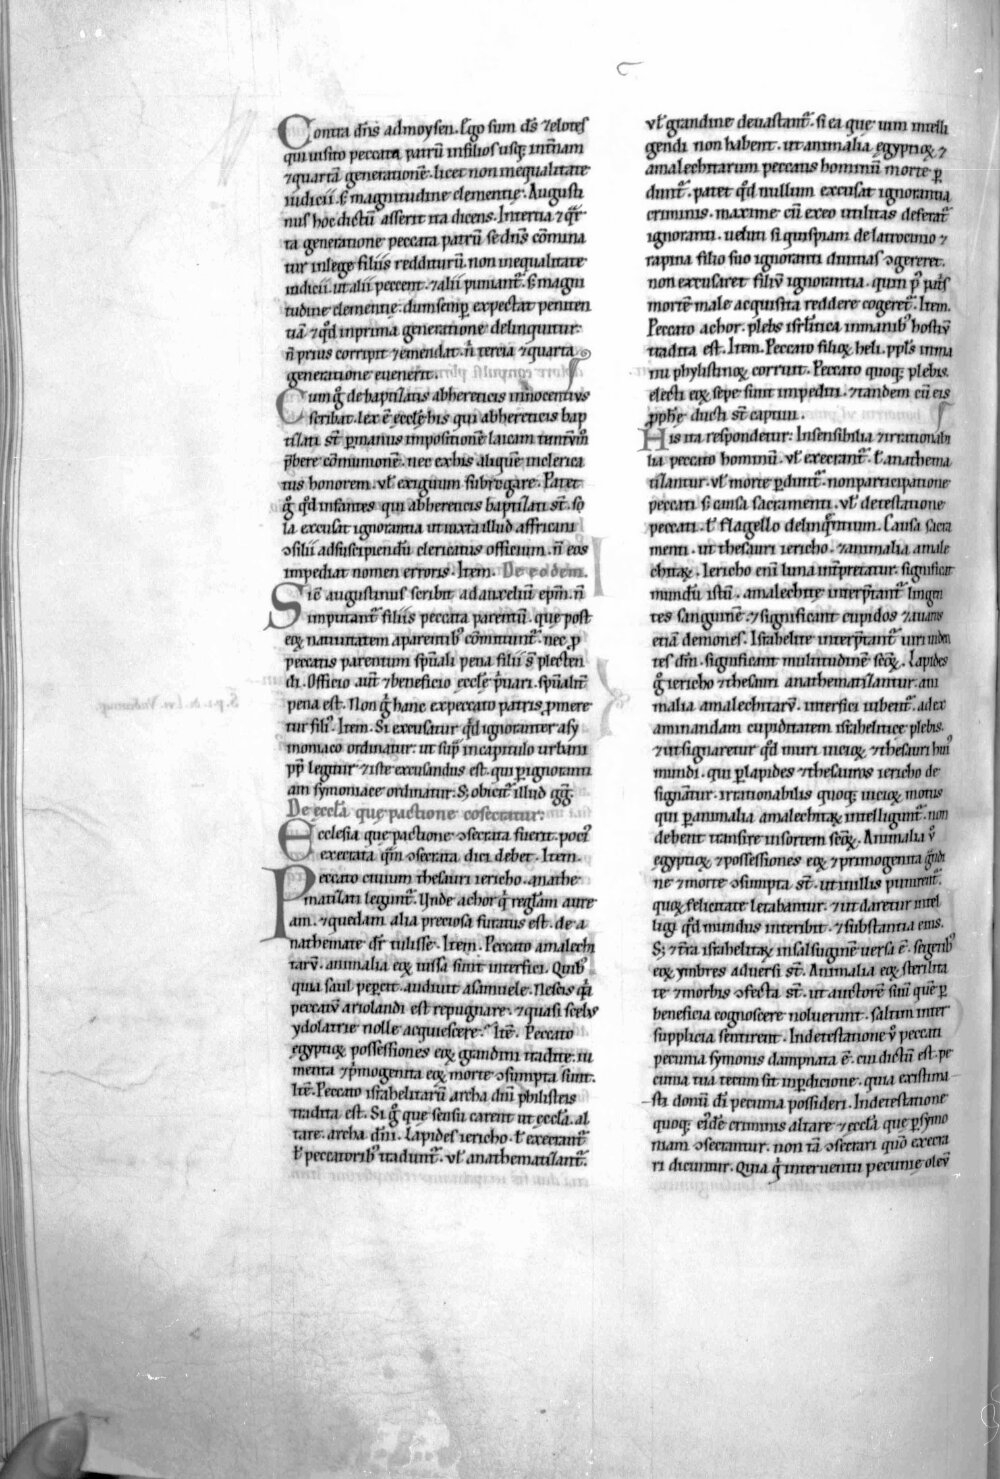 Contra dn̄s ad moysen. Ego sum d̄s ⁊elotes
qui uisito peccata patrū in filios usq; in tr̄iam
⁊ quartā generationē. licet non inequalitate
iudicii. s̄; magnitudine clementie. Augusti
nus hoc dictū asserit ita dicens. In tertia ⁊ q̄r
ta generatione peccata patrū se dn̄s cōmina
tur in lege filiis redditurū. non inequalitate
iudicii. ut alii peccent. ⁊ alii puniant᷑. s̄; magni
tudine clementie. dum semp̱ expectat peniten
tiā ⁊ qd̄ in prima generatione delinquitur.
n̄ prius corripit ⁊ emendat. n̄ tercia ⁊ quarta
generatione euenerit.
Cumq̄ de baptizatis ab hereticis innocentius
scribat. lex ē eccl̄e his qui ab hereticis bap
tizati st̄. p̱ manus impositionē laicam tantūm
p̄bere cōmunionē. nec ex his aliquē in clerica
tus honorem. ul̄ exiguum subrogare. Patet
g̊ qd̄ infantes qui ab hereticis baptizati st̄. so
la excusat ignorantia ut iuxta illud affricani
ꝯsilii ad suscipiendū clericatus officium. n̄ eos
impediat nomen erroris. Item. De eodem.
Sic̄ augustinus scribit ad auxeliū ep̄m. n̄
imputant᷑ filiis peccata parentū. que post
eoꝝ natiuitatem a parentib᷒ cōmittunt᷑. nec p̱
peccatis parentum sp̄uali pena filii s̄t plecten
di. Officio aut̄ ⁊ beneficio eccl̄e p̄uari. sp̄ualit̄
pena est. Non g̊ hanc ex peccato patris p̱mere
tur fili᷒. Item. Si excusatur qd̄ ignoranter a sy
moniaco ordinatur. ut sup̄ in capitulo urbani
pp̄ legitur ⁊ iste excusandus est. qui p̱ ignoranti
am symoniace ordinatur. S; obicit᷑ illud gg̅.
De eccl̄a que pactione cōsecratur.
Ecclesia que pactione ꝯsecrata fuerit. poci᷒
execrata q̄m ꝯsecrata dici debet. Item.
Peccato ciuium thesauri iericho. anathe
matizati legunt᷑. Unde achor q̄ reglam aure
am. ⁊ quedam alia preciosa furatus est. de a
nathemate dr̄ tulisse. Item. Peccato amalechi
tarū. animalia eoꝝ iussa sunt interfici. Quib᷒
quia saul pep̱cit. audiuit a samuele. Nescis q̄a
peccatū ariolandi est repugnare. ⁊ quasi scel᷒
ydolatrie nolle acquiescere. Itē. Peccato
egyptioꝝ possessiones eoꝝ grandini tradite. iu
menta ⁊ p̄mogenita eoꝝ morte ꝯsumpta sunt.
Itē. Peccato israhelitarū archa dn̄i philisteis
tradita est. Si g̊ que sensu carent ut eccl̄a. al
tare. archa dn̄i. Lapides iericho. t̄ execrant᷑
t̄ peccatorib᷒ tradunt᷑. ul̄ anathematizant᷑.
ul̄ grandine deuastant᷑. si ea que uim intelli
gendi non habent. ut animalia egyptioꝝ ⁊
amalechitarum peccatis hominū morte p̱
dunt᷑. patet qd̄ nullum excusat ignorantia
criminis. maxime cū ex eo utilitas deferat᷑
ignoranti. ueluti si quispiam de latrocinio ⁊
rapina filio suo ignoranti diuitias ꝯgereret.
non excusaret filiū ignorantia. quin p᷒ pat̄s
mortē male acquisita reddere coget᷑. Item.
Peccato achor. plebs isrl̄itica in manib᷒ hostiū
tradita est. Item. Peccato filioꝝ heli. ppl̄s in ma
nu phylistinoꝝ corruit. Peccato quoq; plebis.
electi eoꝝ sepe sunt impediti. ⁊ tandem cū eis
p̱phe ducti st̄ captiui.
His ita respondetur. Insensibilia ⁊ irrationabi
lia peccato hominū. ul̄ execrant᷑. t̄ anathema
tizantur. ul̄ morte p̱dunt᷑. non participatione
peccati s̄; causa sacramenti. ul̄ detestatione
peccati. t̄ flagello delinq̄ntium. Causa sacra
menti. ut thesauri iericho. ⁊ animalia amale
chitaꝝ. Iericho eni᷒ luna int̄pretatur. significat
mundū istū. amalechite interp̄tant᷑ lingen
tes sanguinē. ⁊ significant cupidos ⁊ auaros
etiā demones. Israhelite interp̄tant᷑ uiri uiden
tes dm̄. significant multitudinē sc̄oꝝ. Lapides
g̊ iericho ⁊ thesauri anathematizantur. ani
malia amalechitarū. interfici iubent᷑. ad ex
aminandam cupiditatem israhelitice plebis.
⁊ ut signaretur qd̄ muri uicioꝝ ⁊ thesauri hui᷒
mundi. qui p̱ lapides ⁊ thesauros iericho de
signātur. irrationabilis quoq; uicioꝝ motus
qui p̱ animalia amalechitaꝝ intelligunt᷑. non
debent transire in sortem sc̄oꝝ. Animalia ū
egyptioꝝ ⁊ possessiones eoꝝ ⁊ primogenita g̊ndi
ne ⁊ morte ꝯsumpta st̄. ut in illis punirent᷑.
quoꝝ felicitate letabantur. ⁊ ut daretur intel
ligi qd̄ mundus interibit. ⁊ substantia eius.
S; ⁊ tr̄a israhelitaꝝ in salsuginē uersa ē. segetib᷒
eoꝝ ymbres aduersi st̄. Animalia eoꝝ sterilita
te ⁊ morbis ꝯfecta st̄. ut auctorē suū quē p̱
beneficia cognoscere noluerunt. saltim inter
supplicia sentirent. In detestatione ū peccati
pecunia symonis dampnata ē. cui dictū est. pe
cunia tua tecum sit in p̱dicione. quia existima
sti donū dī pecunia possideri. In detestatione
quoq; ei᷒dē criminis altare ⁊ eccl̄a que p̱ symo
niam ꝯsecrantur. non tā ꝯsecrari quō execra
ri dicuntur. Quia q̄ interuentu pecunie oleū